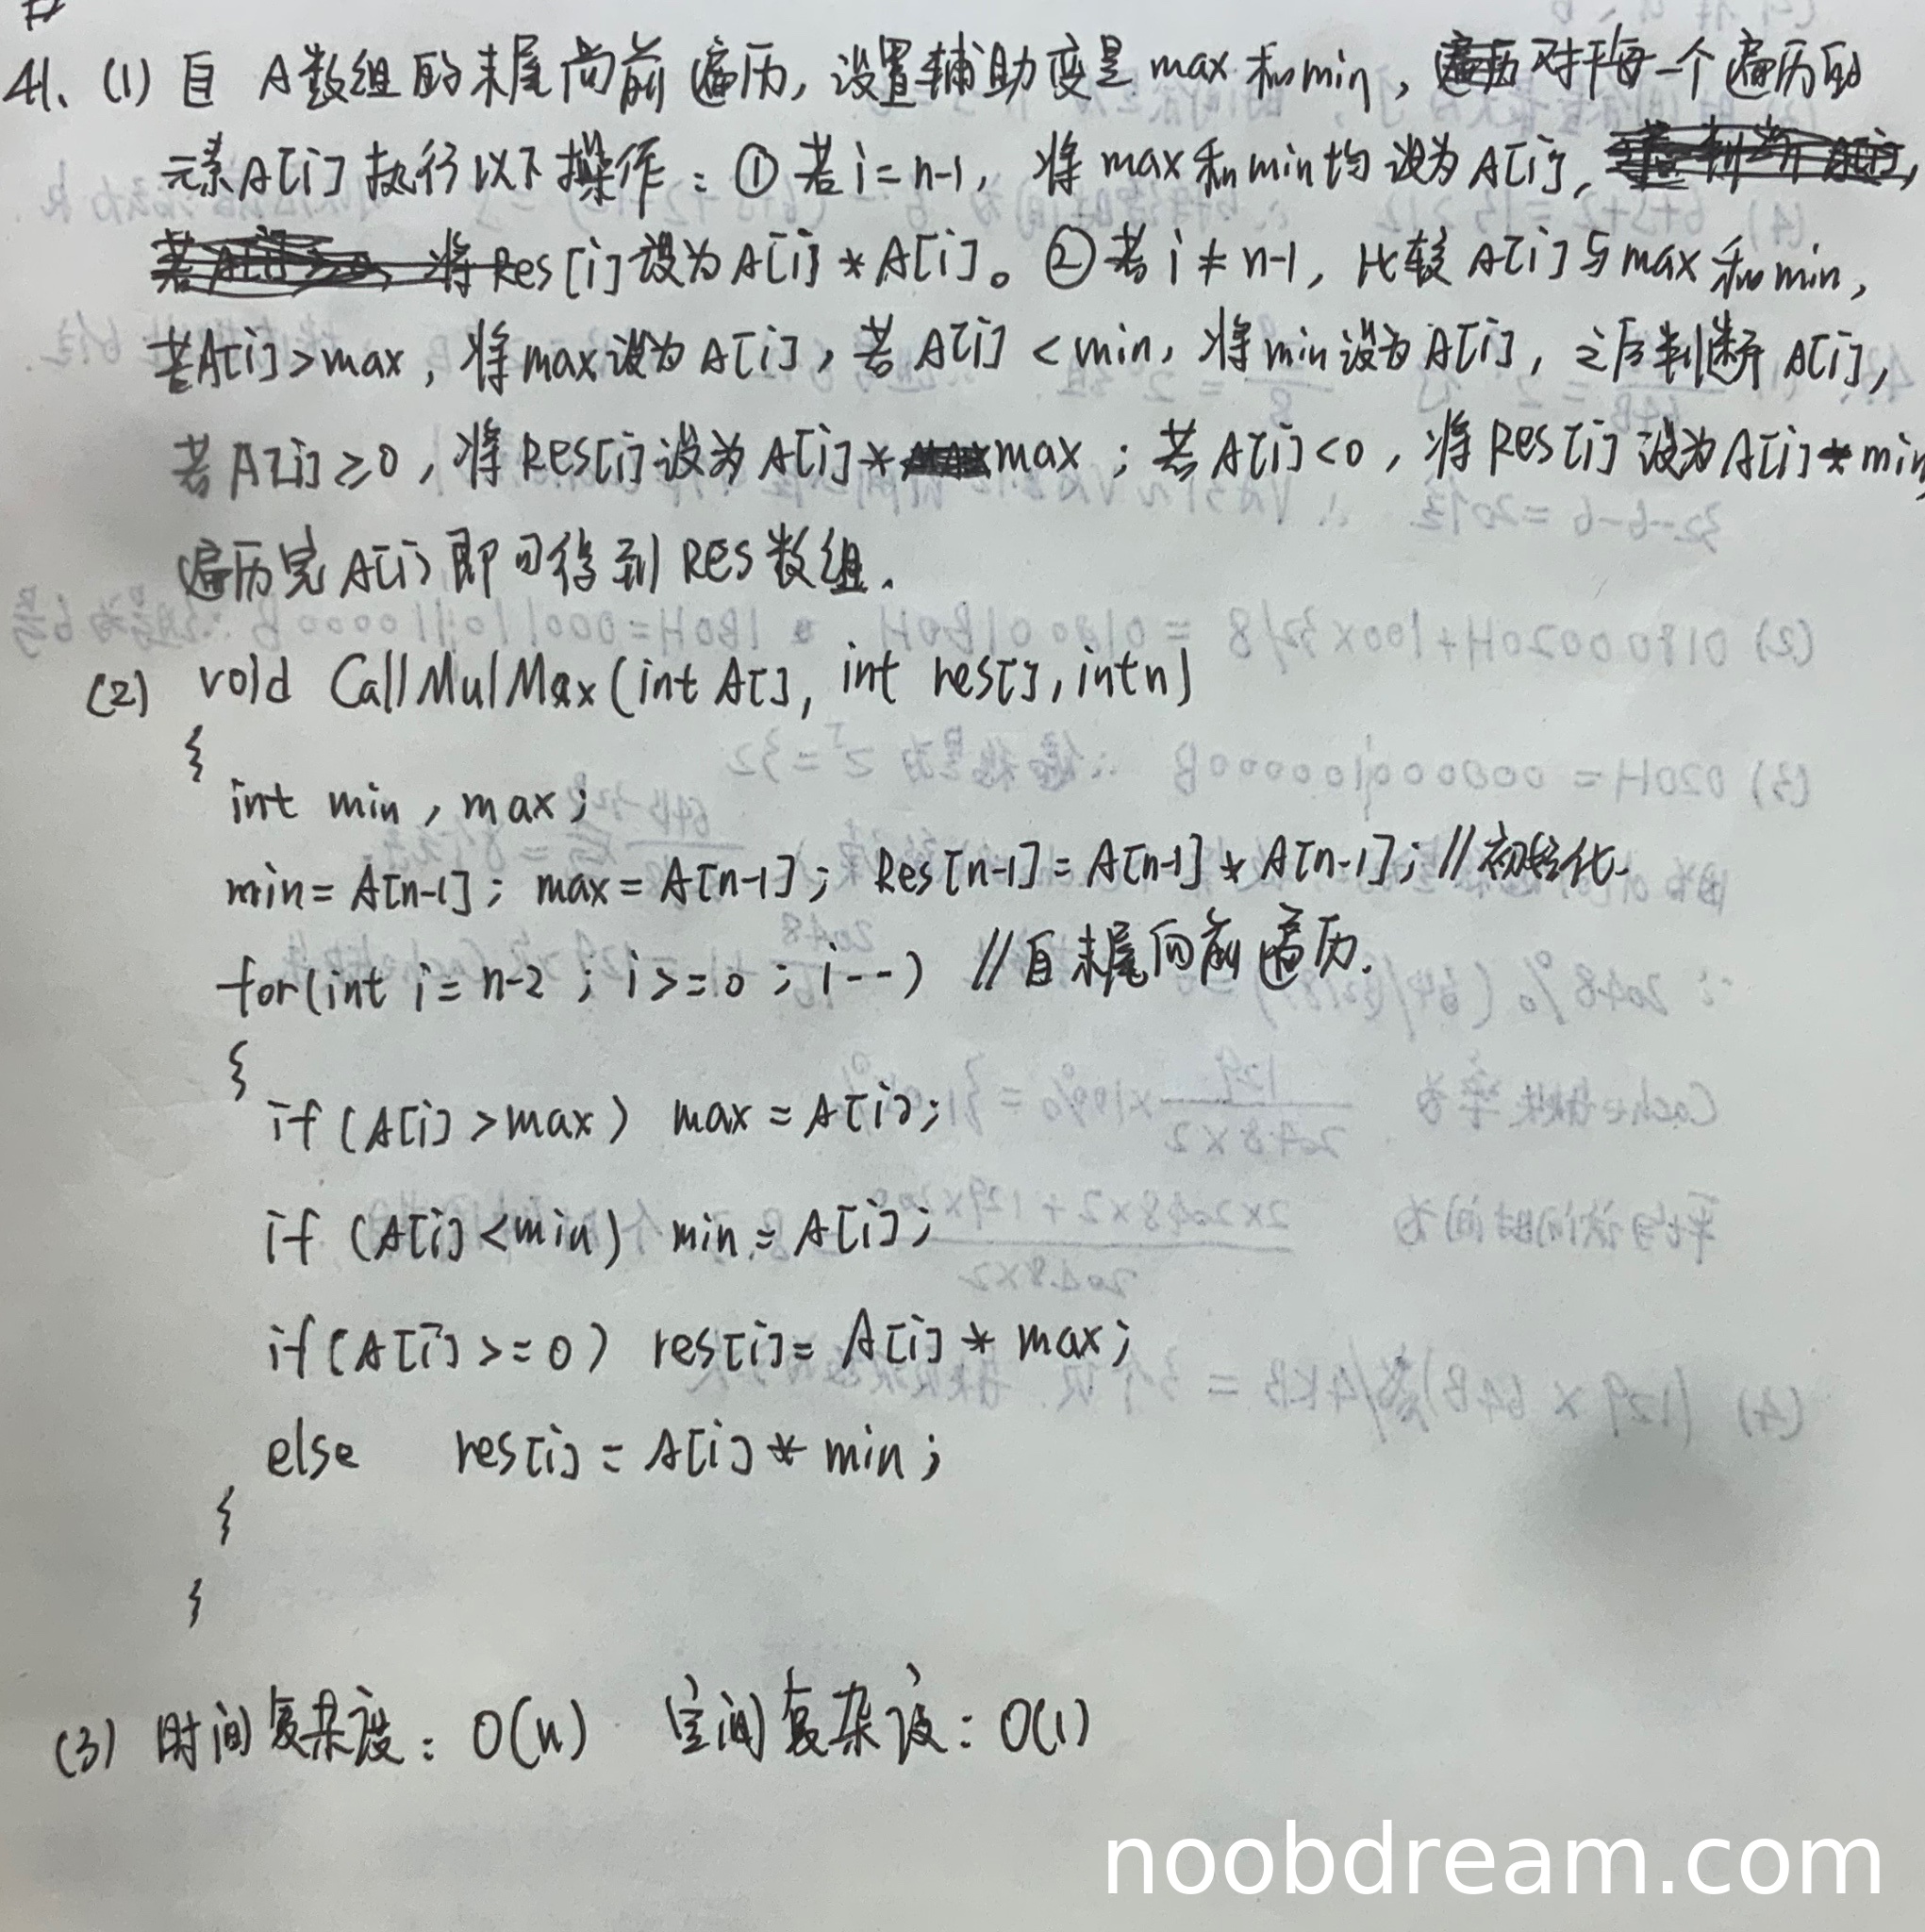 41、(1) 自 A数组的末尾向前遍历, 设置辅助变量 max 和min, 对于每一个遍历的
元素A[i] 执行以下操作: ① 若i=n-1, 将 max 和min均设为A[i],
将Res[i]设为A[i]*A[i]。②若i≠n-1, 比较A[i]与max和min,
若A[i]>max, 将max设为A[i], 若A[i]<min, 将min设为A[i], 之后判断A[i],
若A[i]≥0, 将Res[i]设为A[i]*max; 若A[i]<0, 将Res[i]设为A[i]*min
遍历完A[i]即可得到Res数组.
(2) void CallMulMax(int A[], int res[], int n)
{
int min, max;
min=A[n-1]; max=A[n-1]; Res[n-1]=A[n-1]*A[n-1]; //初始化.
for(int i=n-2; i>=0; i--) //自末尾向前遍历.
{
if(A[i]>max) max=A[i];
if(A[i]<min) min=A[i];
if(A[i]>=0) res[i]=A[i]*max;
else res[i]=A[i]*min;
}
}
(3) 时间复杂度: O(n) 空间复杂度: O(1)
noobdream.com